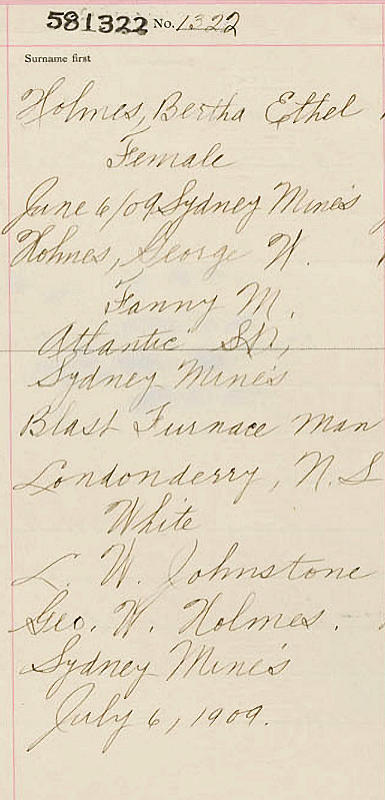 581322 No. 1322
Surname first
Holmes, Bertha Ethel
Female
June 6/09 Sydney Mines
Holmes, George W.
Fanny M.
Atlantic St,
Sydney Mines
Blast Furnace Man
Londonderry, N. S
White
L. W. Johnstone
Geo. W. Holmes.
Sydney Mines
July 6, 1909.